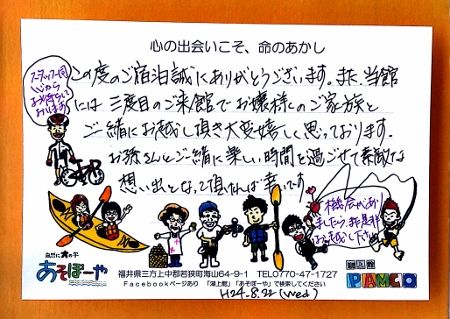 心の出会いこそ、命のあかし
この度のご宿泊誠にありがとうございます。また、当館
には三度目のご来館でお嬢様のご家族と
ご一緒にお越し頂き大変嬉しく思っております。
お孫さんとご一緒に楽しい時間を過ごせて素敵な
想い出となって頂ければ幸いです。
スタッフ一同
心から
お待ちして
おります
機会があり
ましたら、また是非
お越し下さい
自然に大の字
あそぼーや
湖上館
PAMCO
福井県三方上中郡若狭町海山64-9-1 TEL0770-47-1727
Facebookページあり 「湖上館」「あそぼーや」で検索してください
H24.8.22(Wed)